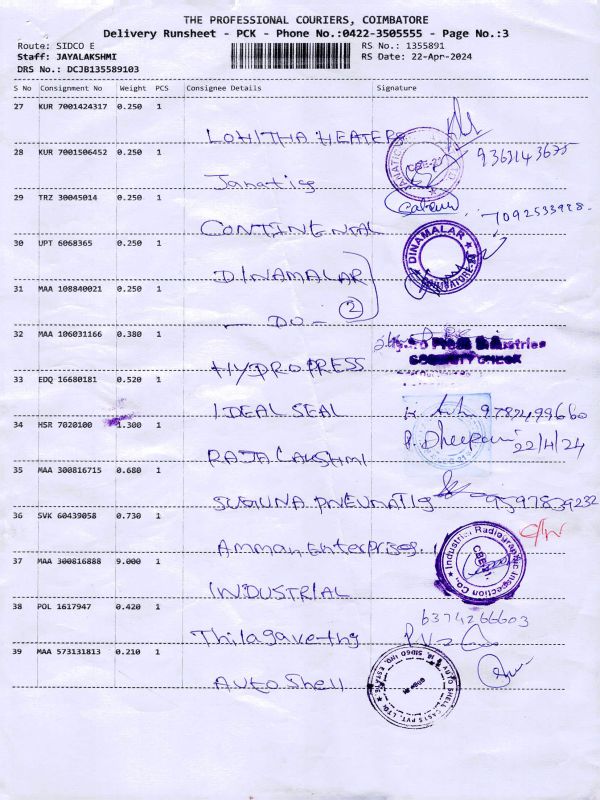 THE PROFESSIONAL COURIERS, COIMBATORE
Delivery Runsheet - PCK - Phone No.:0422-3505555 - Page No.:3
Route: SIDCO E
RS No.: 1355891
Staff: JAYALAKSHMI
RS Date: 22-Apr-2024
DRS No.: DCJB135589103
S No Consignment No Weight PCS Consignee Details Signature
27 KUR 7001424317 0.250 1
LOHITHA HEATERS
28 KUR 7001506452 0.250 1
9363143675
Janatics
29 TRZ 30045014 0.250 1
7092533928
CONTINENTAL
30 UPT 6068365 0.250 1
DINAMALAR
DINAMALAR
COIMBATORE
31 MAA 108840021 0.250 1
2
- DO -
32 MAA 106031166 0.380 1
Hydro Press Industries
SECURITY CHECK
HYDROPRESS
33 EDQ 16680181 0.520 1
IDEAL SEAL
34 HSR 7020100 1.300 1
22/4/24
RAJALAKSHMI
35 MAA 300816715 0.680 1
9597839232
SUGUNA PNEUMATIS
36 SVK 60439058 0.730 1
Amman Enterprises
37 MAA 300816888 9.000 1
Industrial Radiographic Inspection Co.
CBE
INDUSTRIAL
38 POL 1617947 0.420 1
6374266603
Thilagavethy
39 MAA 573131813 0.210 1
AUTO SHELL CASTS PVT. LTD.
Auto Shell